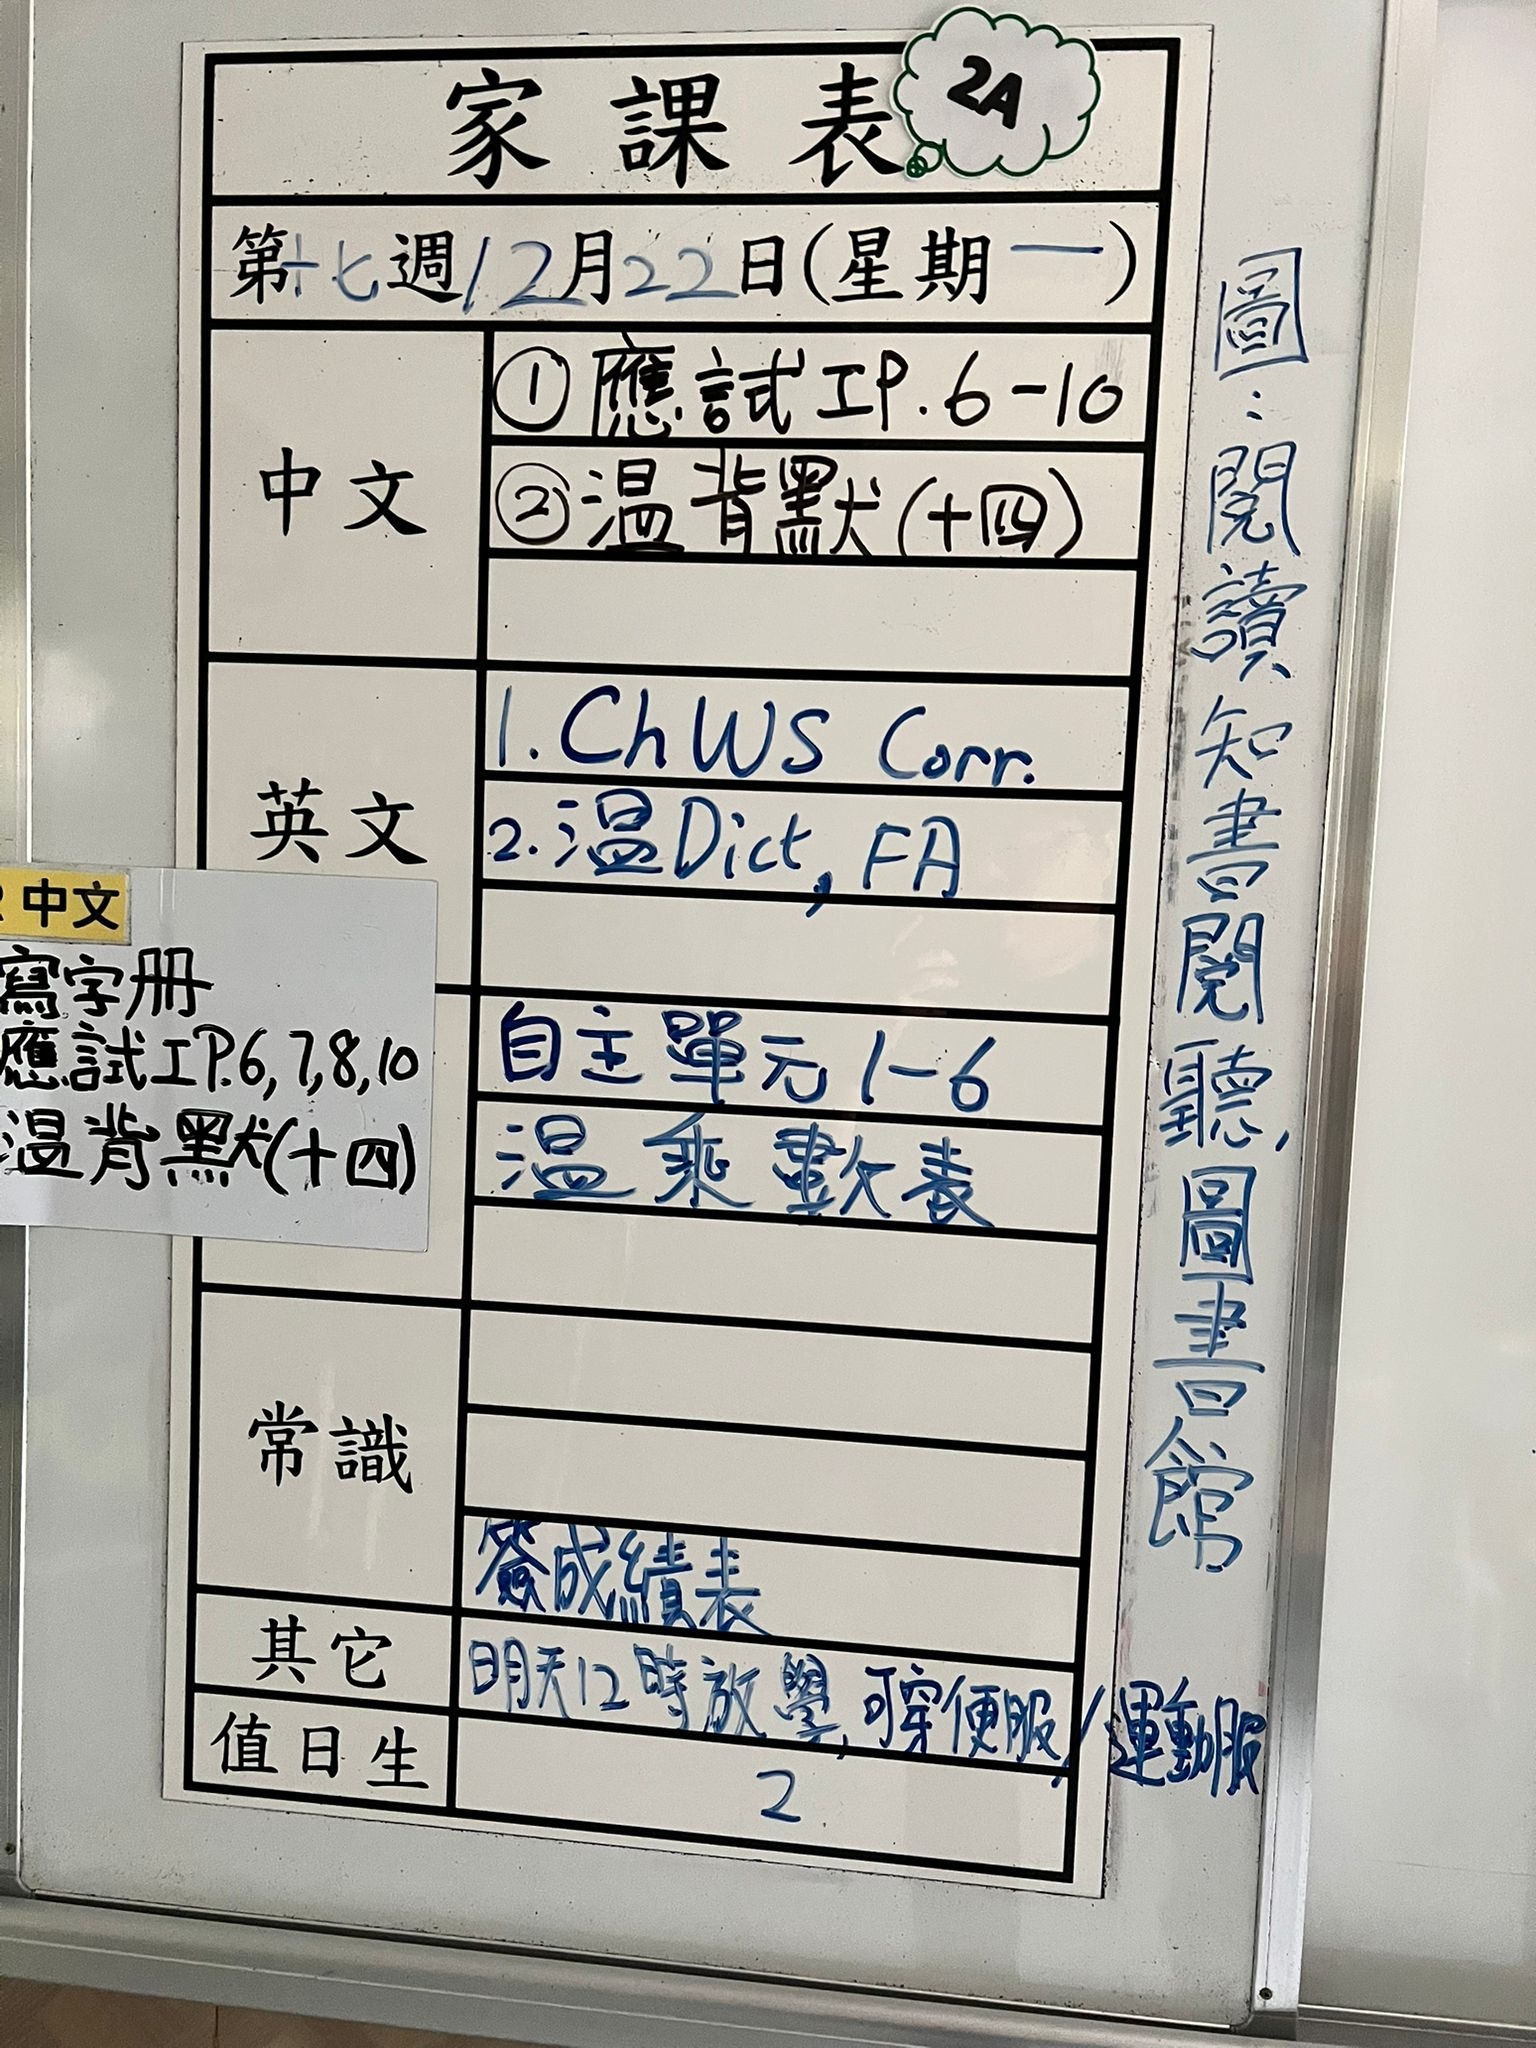 家課表
2A
第十七週12月22日(星期一)
中文
①應試工P.6-10
②温背默(十四)
英文
1.Ch WS Corr.
2.温Dict, FA
自主單元1-6
温乘數表
常識
簽成績表
其它
明天12時放學,可穿便服/運動服
值日生
2
中文
寫字冊
應試工P.6,7,8,10
温背默(十四)
圖:閱讀知書閱聽圖書館